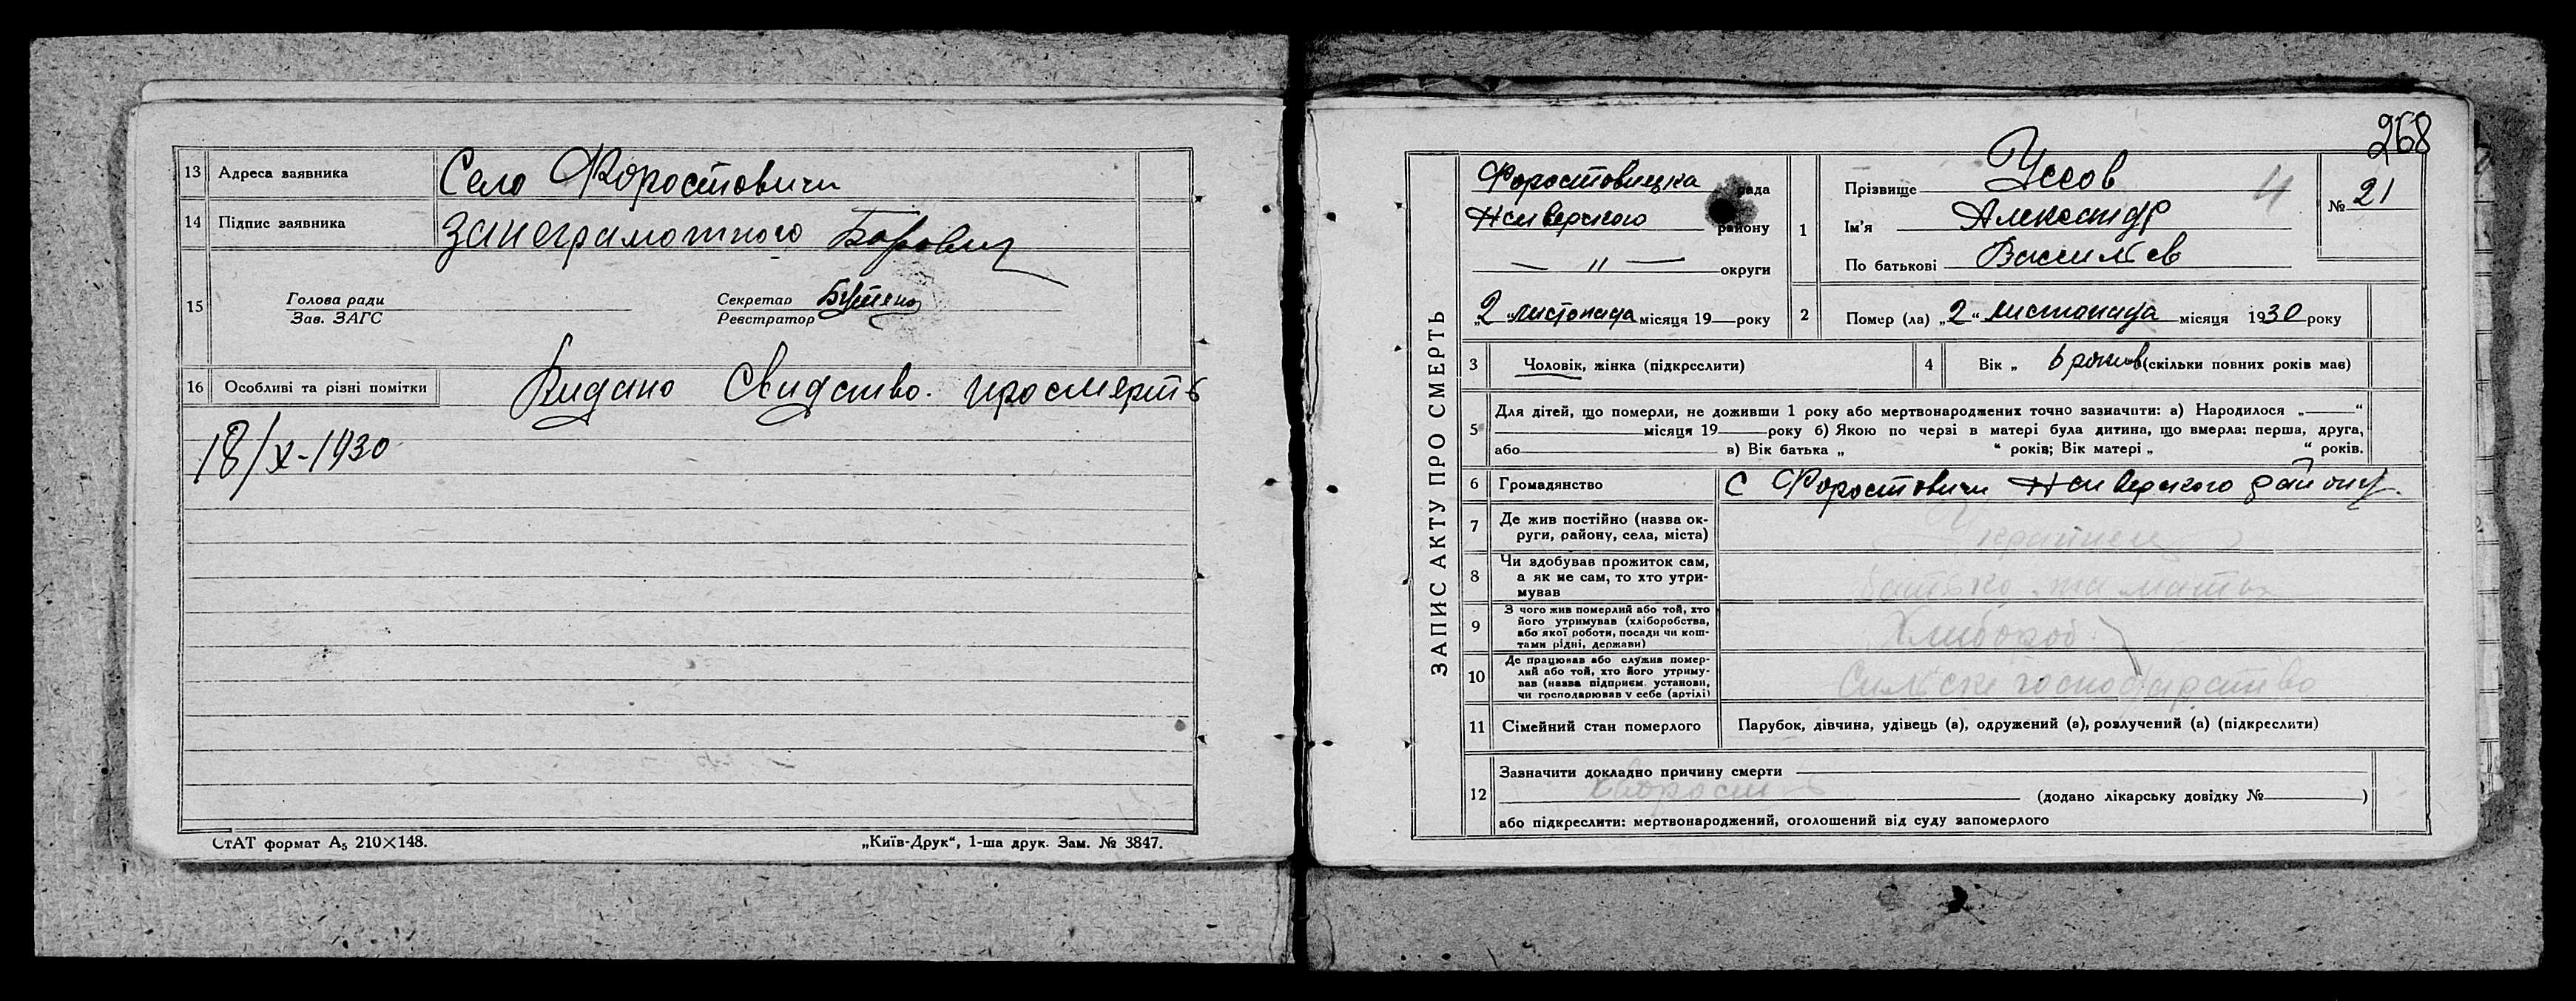 13 Адреса заявника Село Форостовичи
14 Підпис заявника Занеграмотного
15 Голова ради
Зав. ЗАГС
Секретар
Реєстратор
16 Особливі та різні помітки Видано Свидство. просмерть
18/X-1930
СтАТ формат А5 210×148.
„Київ-Друк“, 1-ша друк. Зам. № 3847.
268
ЗАПИС АКТУ ПРО СМЕРТЬ
Форостовицька рада
Нсиверского району
— " — округи
„2 листопада місяця 19 року
1 Прізвище Уссов
Ім'я Александр
По батькові Васильев
4
№ 21
2 Помер (ла) „2“ листопада місяця 1930 року
3 Чоловік, жінка (підкреслити)
4 Вік „ 6 років (скільки повних років має)
5 Для дітей, що померли, не доживши 1 року або мертвонароджених точно зазначити: а) Народилося „ “
місяця 19 року б) Якою по черзі в матері була дитина, що вмерла: перша, друга,
або в) Вік батька „ “ років; Вік матері „ “ років.
6 Громадянство С Форостовичи Нсиверского району.
7 Де жив постійно (назва ок-
руги, району, села, міста)
8 Чи здобував прожиток сам,
а як не сам, то хто утри-
мував батько та мать
9 З чого жив померлий або той, хто
його утримував (хліборобства,
або якої роботи, посади чи кош-
тами рідні, держави) Хлибороб
10 Де працював або служив помер-
лий або той, хто його утриму-
вав (назва підприєм. установи,
чи господарював у себе (артілі) Сильске господарство
11 Сімейний стан померлого Парубок, дівчина, удівець (а), одружений (а), розлучений (а) (підкреслити)
12 Зазначити докладно причину смерти
(додано лікарську довідку № )
або підкреслити: мертвонароджений, оголошений від суду запомерлого